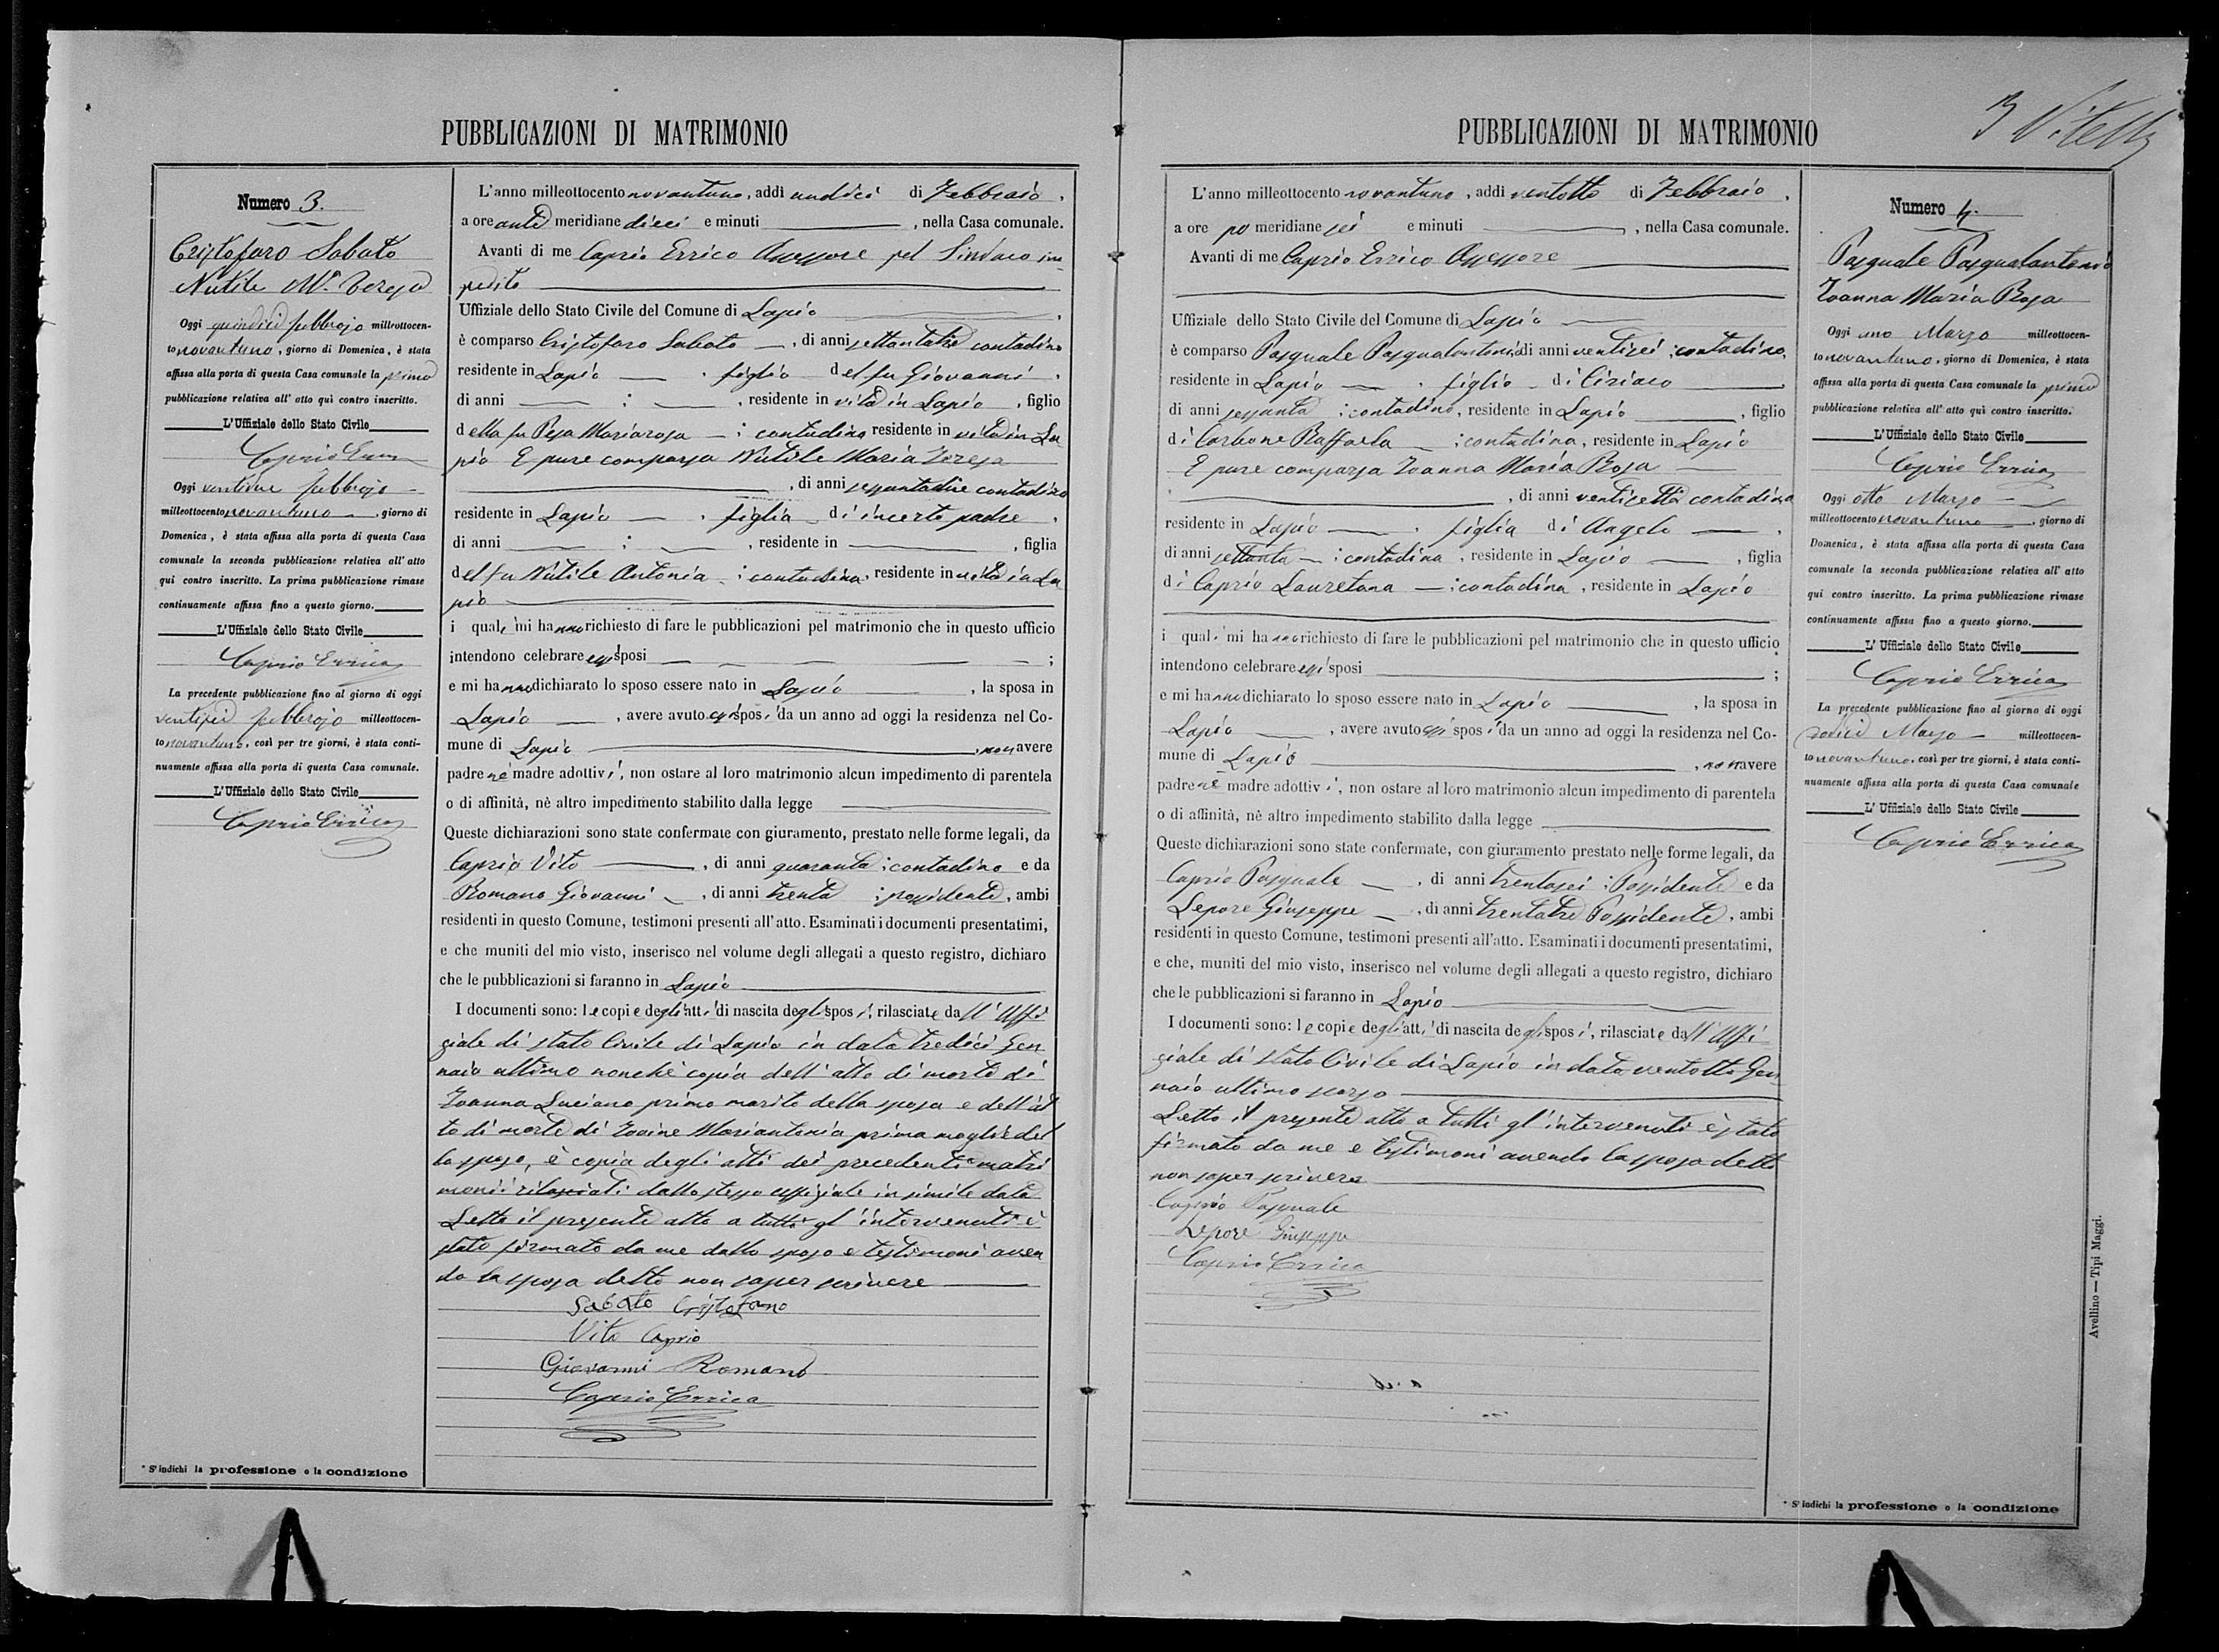 PUBBLICAZIONI DI MATRIMONIO
Numero 3.
Cristofaro Sabato
Nutile M.ª Teresa
Oggi quindici febbrajo milleottocen-
to novantuno, giorno di Domenica, è stata
affissa alla porta di questa Casa comunale la prima
pubblicazione relativa all' atto quì contro inscritto.
L'Uffiziale dello Stato Civile
Caprio Errico
Oggi ventidue febbrajo
milleottocento novantuno, giorno di
Domenica, è stata affissa alla porta di questa Casa
comunale la seconda pubblicazione relativa all' atto
qui contro inscritto. La prima pubblicazione rimase
continuamente affissa fino a questo giorno.
L'Uffiziale dello Stato Civile
Caprio Errico
La precedente pubblicazione fino al giorno di oggi
ventisei febbrajo milleottocen-
to novantuno, così per tre giorni, è stata conti-
nuamente affissa alla porta di questa Casa comunale.
L'Uffiziale dello Stato Civile
Caprio Errico
* S'indichi la professione o la condizione
L'anno milleottocento novantuno, addì undici di Febbraio,
a ore anti meridiane dieci e minuti , nella Casa comunale.
Avanti di me Caprio Errico Assessore pel Sindaco im
pedito
Uffiziale dello Stato Civile del Comune di Lapio ,
è comparso Cristofaro Sabato , di anni settantatre contadino
residente in Lapio . figlio del fu Giovanni ,
di anni ; , residente in vita in Lapio , figlio
della fu Pesa Mariarosa ; contadina residente in vita in La
pio E pure comparsa Nutile Maria Teresa
, di anni sessantadue contadina
residente in Lapio . figlia di incerto padre ,
di anni ; , residente in , figlia
del fu Nutile Antonia ; contadina, residente in vita in La
pio
i quali mi hanno richiesto di fare le pubblicazioni pel matrimonio che in questo ufficio
intendono celebrare essi sposi ;
e mi hanno dichiarato lo sposo essere nato in Lapio , la sposa in
Lapio , avere avuto essi sposi da un anno ad oggi la residenza nel Co-
mune di Lapio , non avere
padre nè madre adottivi, non ostare al loro matrimonio alcun impedimento di parentela
o di affinità, nè altro impedimento stabilito dalla legge
Queste dichiarazioni sono state confermate con giuramento, prestato nelle forme legali, da
Caprio Vito , di anni quaranta ; contadino e da
Romano Giovanni , di anni trenta ; possidente, ambi
residenti in questo Comune, testimoni presenti all'atto. Esaminati i documenti presentatimi,
e che muniti del mio visto, inserisco nel volume degli allegati a questo registro, dichiaro
che le pubblicazioni si faranno in Lapio
I documenti sono: le copie degli atti di nascita degli sposi, rilasciate dall'Uffi
ziale di stato Civile di Lapio in data tredici Gen
naio ultimo nonchè copia dell'atto di morte di
Ioanna Luciano primo marito della sposa e dell'at
to di morte di Iovine Mariantonia prima moglie del
lo sposo, è copia degli atti dei precedenti matri
monii rilasciati dallo stesso uffiziale in simile data
Letto il presente atto a tutti gl'intervenuti è
stato firmato da me dallo sposo e testimoni aven
do la sposa detto non saper scrivere
Sabato Cristofano
Vito Caprio
Giovanni Romano
Caprio Errico
PUBBLICAZIONI DI MATRIMONIO
L'anno milleottocento novantuno, addì ventotto di Febbraio,
a ore po meridiane sei e minuti , nella Casa comunale.
Avanti di me Caprio Errico Assessore
Uffiziale dello Stato Civile del Comune di Lapio
è comparso Pasquale Pasqualantonio di anni ventisei ; contadino,
residente in Lapio . figlio di Ciriaco ,
di anni sessanta ; contadino, residente in Lapio , figlio
di Carbone Raffaela ; contadina, residente in Lapio
E pure comparsa Ioanna Maria Rosa
, di anni ventisette contadina
residente in Lapio . figlia di Angelo ,
di anni settanta ; contadina, residente in Lapio , figlia
di Caprio Lauretana ; contadina, residente in Lapio
i quali mi hanno richiesto di fare le pubblicazioni pel matrimonio che in questo ufficio
intendono celebrare essi sposi ;
e mi hanno dichiarato lo sposo essere nato in Lapio , la sposa in
Lapio , avere avuto essi sposi da un anno ad oggi la residenza nel Co-
mune di Lapio , non avere
padre nè madre adottivi, non ostare al loro matrimonio alcun impedimento di parentela
o di affinità, nè altro impedimento stabilito dalla legge
Queste dichiarazioni sono state confermate, con giuramento prestato nelle forme legali, da
Caprio Pasquale , di anni trentasei ; Possidente e da
Lepore Giuseppe , di anni trentatre Possidente, ambi
residenti in questo Comune, testimoni presenti all'atto. Esaminati i documenti presentatimi,
e che, muniti del mio visto, inserisco nel volume degli allegati a questo registro, dichiaro
che le pubblicazioni si faranno in Lapio
I documenti sono: le copie degli atti di nascita degli sposi, rilasciate dall'Uffi-
ziale di stato Civile di Lapio in data ventotto Gen
naio ultimo scorso
Letto il presente atto a tutti gl'intervenuti è stato
firmato da me e testimoni avendo la sposa detto
non saper scrivere
Caprio Pasquale
Lepore Giuseppe
Caprio Errico
3 Vitelli
Numero 4.
Pasquale Pasqualantonio
Ioanna Maria Rosa
Oggi uno Marzo milleottocen-
to novantuno, giorno di Domenica, è stata
affissa alla porta di questa Casa comunale la prima
pubblicazione relativa all' atto quì contro inscritto.
L'Uffiziale dello Stato Civile
Caprio Errico
Oggi otto Marzo
milleottocento novantuno, giorno di
Domenica, è stata affissa alla porta di questa Casa
comunale la seconda pubblicazione relativa all' atto
qui contro inscritto. La prima pubblicazione rimase
continuamente affissa fino a questo giorno.
L' Uffiziale dello Stato Civile
Caprio Errico
La precedente pubblicazione fino al giorno di oggi
dodici Marzo milleottocen-
to novantuno, così per tre giorni, è stata conti-
nuamente affissa alla porta di questa Casa comunale
L' Uffiziale dello Stato Civile
Caprio Errico
* S'indichi la professione o la condizione
Avellino — Tipi Maggi.